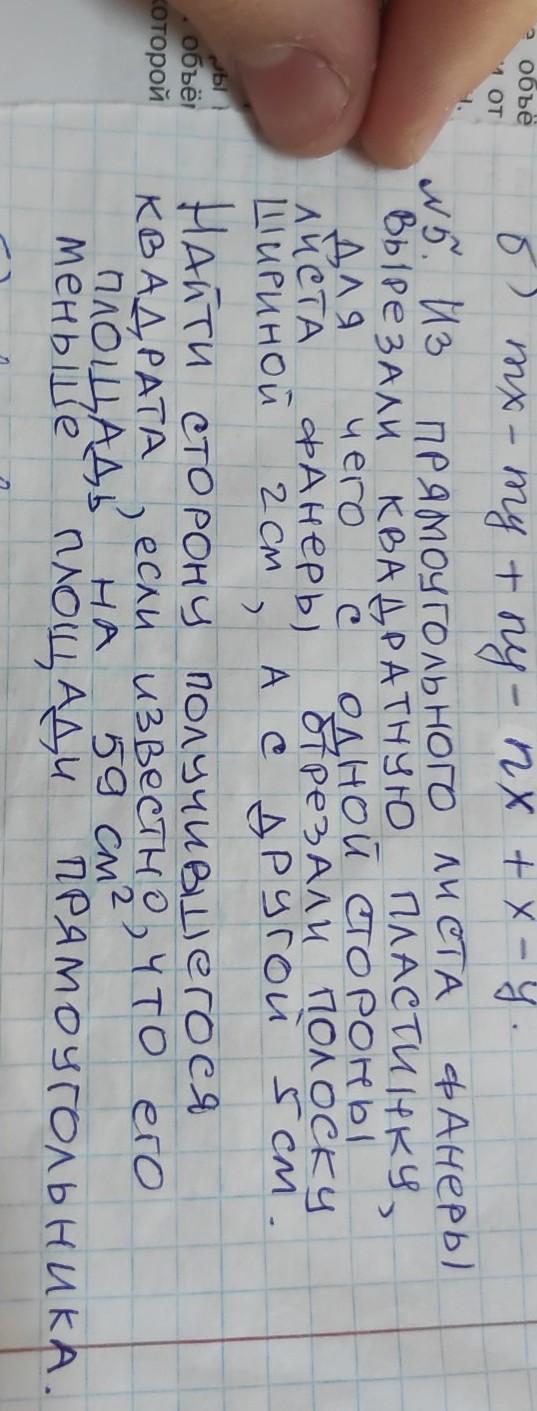 б) mx - my + ny - nx + x - y.
№5. Из прямоугольного листа фанеры
вырезали квадратную пластинку,
для чего с одной стороны
листа фанеры отрезали полоску
шириной 2см, а с другой 5см.
Найти сторону получившегося
квадрата, если известно, что его
площадь на 59 см², 
меньше площади прямоугольника.
объё
от
объё
которой